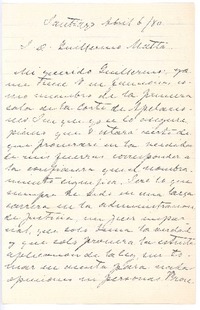 Santiago Abril 6/90
S. D. Guillermo Matta
Mi querido Guillermo: ya
me tiene U. en funciones co-
mo miembro de la primera
sala de la Corte de Apelacio-
nes. Creo que no lo
pienso que U. estará cierto de
que procuraré en la medida
de mis fuerzas corresponder a
la confianza que el nombra-
miento significa. Seré lo que
siempre he sido en una larga
carrera en la administracion
de justicia, un juez impar-
cial, que solo busca la verdad
y que solo procura la estricta
aplicacion de la lei, sin to-
mar en cuenta para nada
opiniones ni personas.